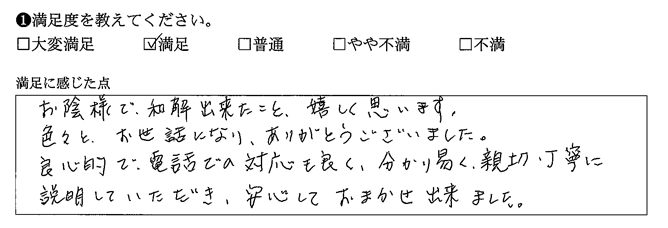 ❶満足度を教えてください。
□大変満足 ☑満足 □普通 □やや不満 □不満
満足に感じた点
お陰様で、和解出来たこと、嬉しく思います。
色々と、お世話になり、ありがとうございました。
良心的で、電話での対応も良く、分かり易く、親切・丁寧に
説明していただき、安心しておまかせ出来ました。